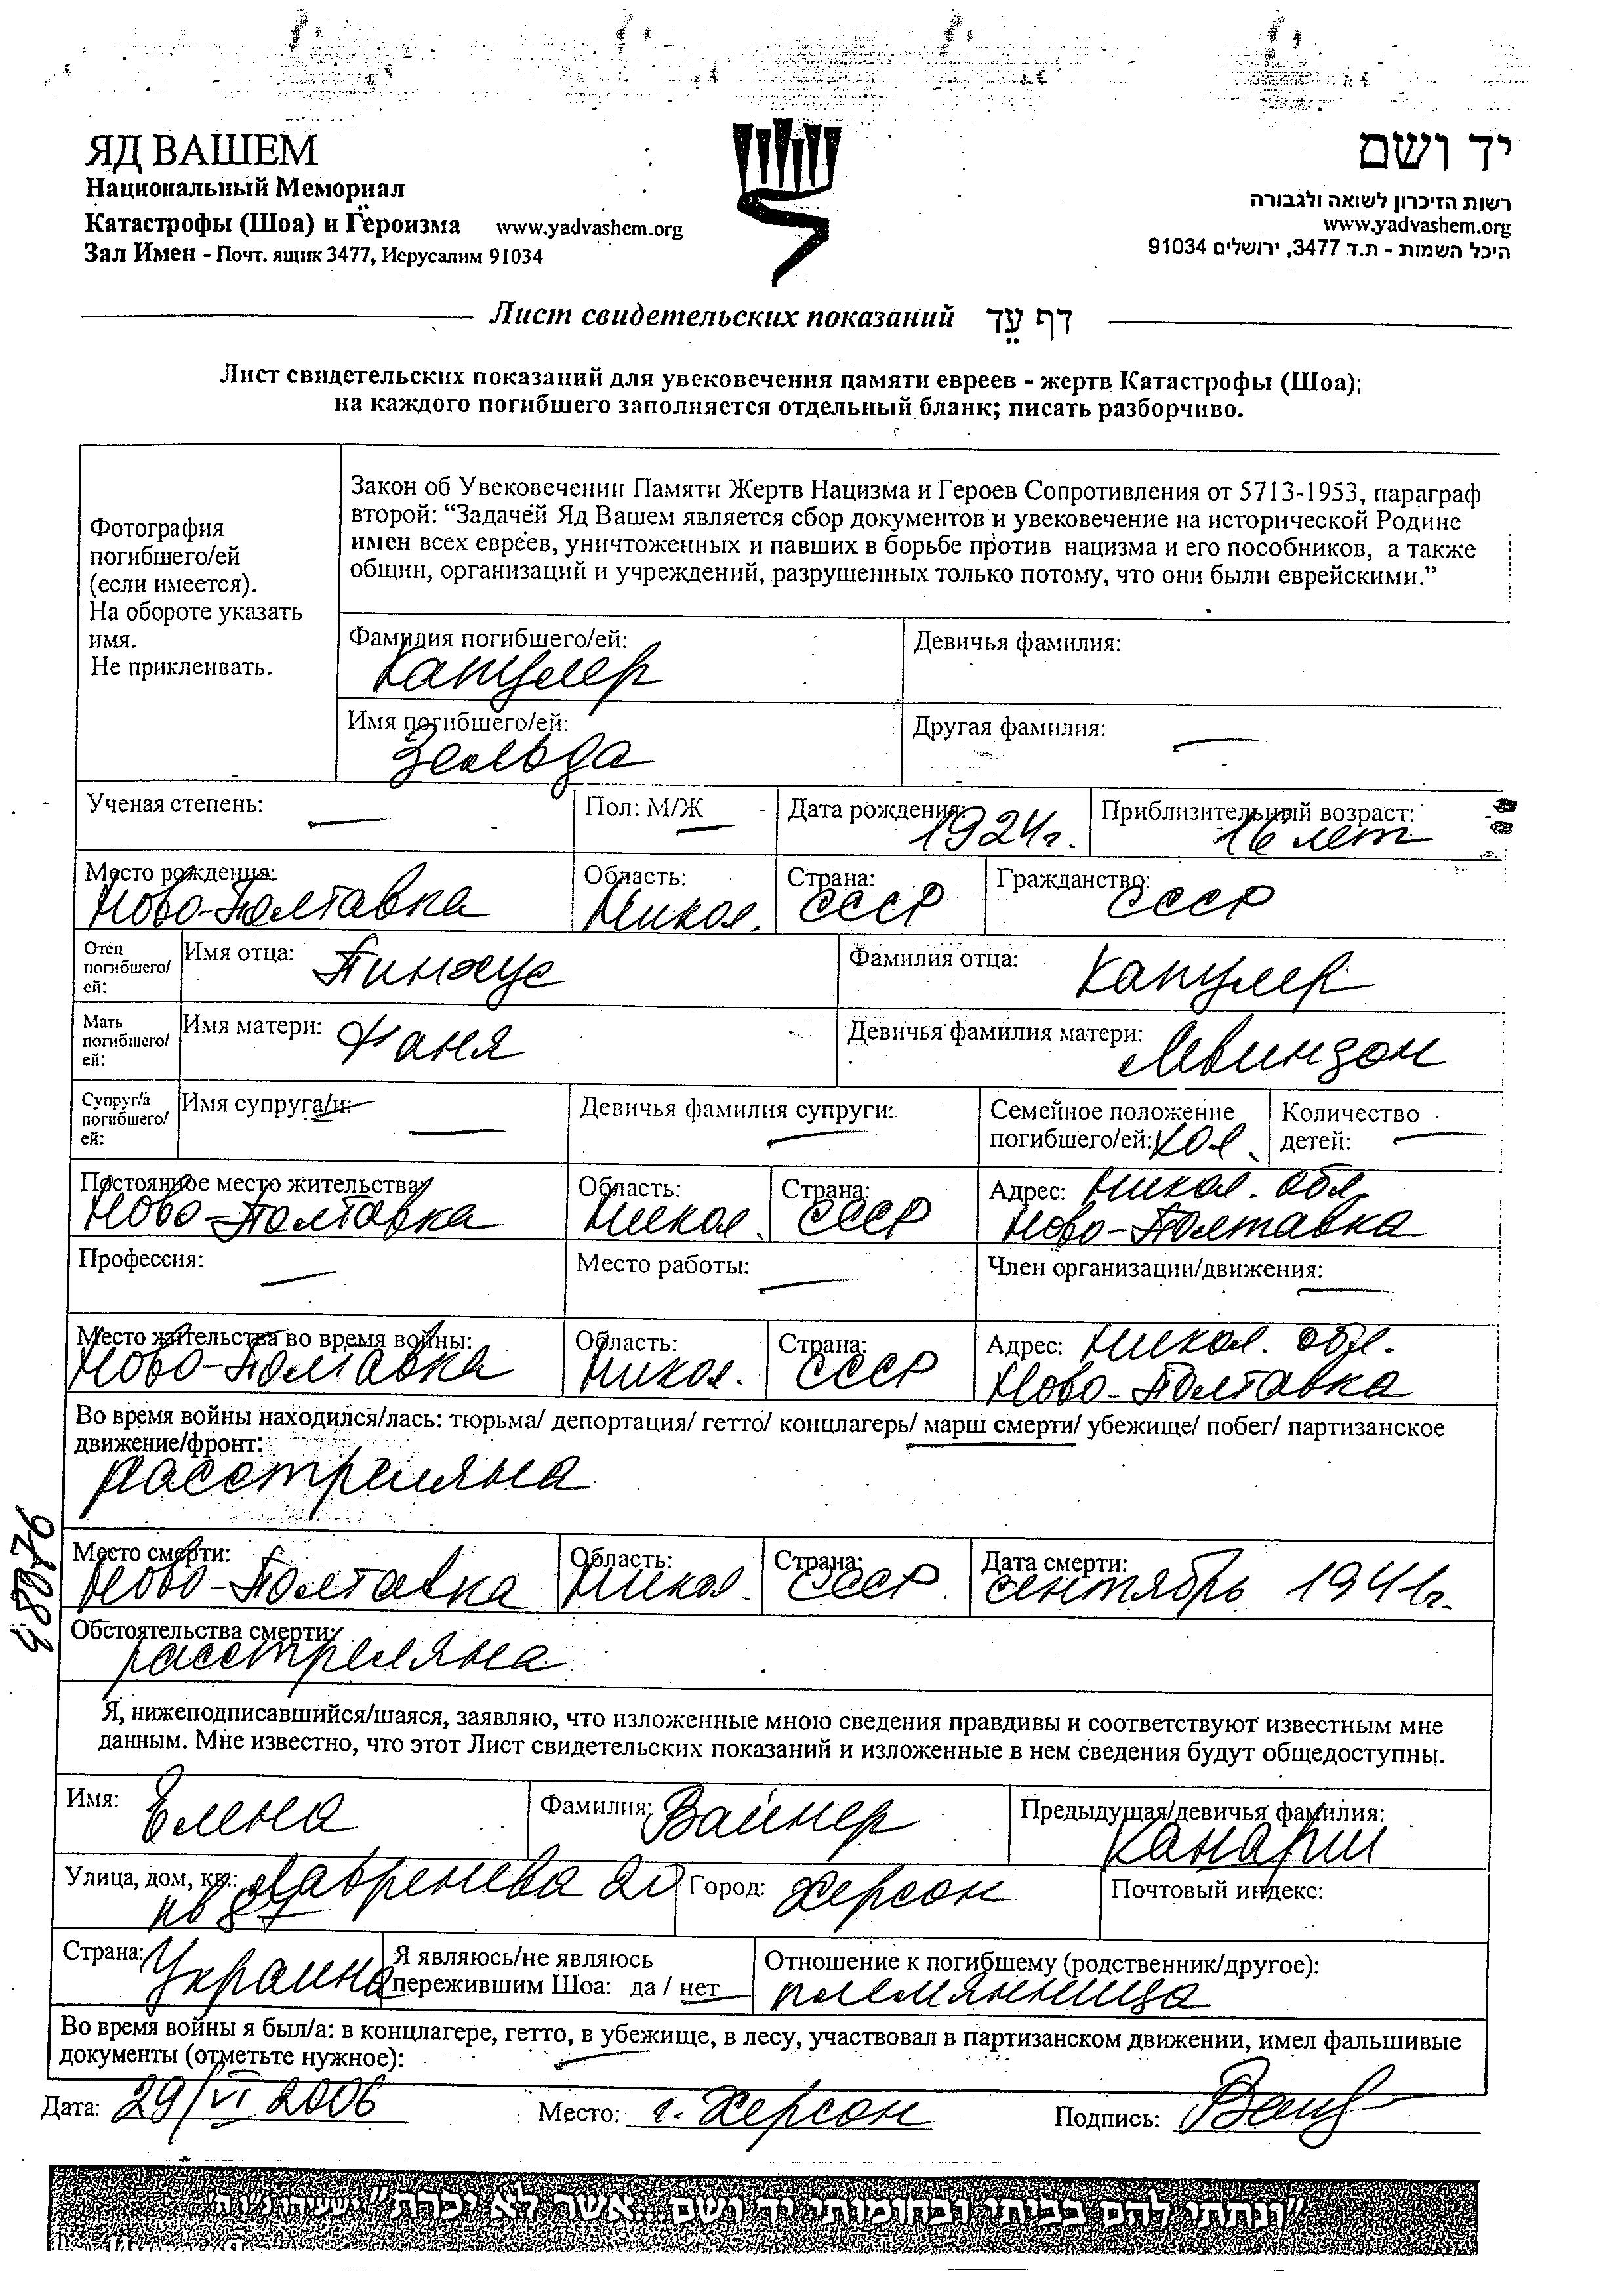 ЯД ВАШЕМ
Национальный Мемориал
Катастрофы (Шоа) и Героизма www.yadvashem.org
Зал Имен - Почт. ящик 3477, Иерусалим 91034
יד ושם
רשות הזיכרון לשואה ולגבורה
www.yadvashem.org
היכל השמות - ת.ד 3477, ירושלים 91034
Лист свидетельских показаний דף עֵד
Лист свидетельских показаний для увековечения памяти евреев - жертв Катастрофы (Шоа);
на каждого погибшего заполняется отдельный бланк; писать разборчиво.
Фотография
погибшего/ей
(если имеется).
На обороте указать
имя.
Не приклеивать.
Закон об Увековечении Памяти Жертв Нацизма и Героев Сопротивления от 5713-1953, параграф
второй: “Задачей Яд Вашем является сбор документов и увековечение на исторической Родине
имен всех евреев, уничтоженных и павших в борьбе против нацизма и его пособников, а также
общин, организаций и учреждений, разрушенных только потому, что они были еврейскими.”
Фамилия погибшего/ей: Девичья фамилия:
Капулер
Имя погибшего/ей: Другая фамилия: —
Зельда
Ученая степень: — Пол: М/Ж Дата рождения: 1924г. Приблизительный возраст: 16 лет
Место рождения: Область: Страна: Гражданство:
Ново-Полтавка Никол. СССР СССР
Отец
погибшего/
ей:
Имя отца: Пинхус Фамилия отца: Капулер
Мать
погибшего/
ей:
Имя матери: Фаня Девичья фамилия матери: Левинзон
Супруг/а
погибшего/
ей:
Имя супруга/и: — Девичья фамилия супруги: — Семейное положение
погибшего/ей: хол. Количество
детей: —
Постоянное место жительства: Область: Страна: Адрес: Никол. обл.
Ново-Полтавка Никол. СССР Ново-Полтавка
Профессия: — Место работы: — Член организации/движения: —
Место жительства во время войны: Область: Страна: Адрес: Никол. обл.
Ново-Полтавка Никол. СССР Ново-Полтавка
Во время войны находился/лась: тюрьма/ депортация/ гетто/ концлагерь/ марш смерти/ убежище/ побег/ партизанское
движение/фронт:
расстреляна
Место смерти: Область: Страна: Дата смерти:
Ново-Полтавка Никол. СССР сентябрь 1941г.
Обстоятельства смерти:
расстреляна
Я, нижеподписавшийся/шаяся, заявляю, что изложенные мною сведения правдивы и соответствуют известным мне
данным. Мне известно, что этот Лист свидетельских показаний и изложенные в нем сведения будут общедоступны.
Имя: Елена Фамилия: Вайнер Предыдущая/девичья фамилия:
Улица, дом, кв.: Лавренева 20 Город: Херсон Почтовый индекс:
кв 87
Страна: Украина Я являюсь/не являюсь
пережившим Шоа: да / нет Отношение к погибшему (родственник/другое):
племянница
Во время войны я был/а: в концлагере, гетто, в убежище, в лесу, участвовал в партизанском движении, имел фальшивые
документы (отметьте нужное):
Дата: 29/VI 2006 Место: г. Херсон Подпись:
"ונתתי להם בביתי ובחומותי יד ושם...אשר לא יכרת" ישעיהו נ"ו ה'